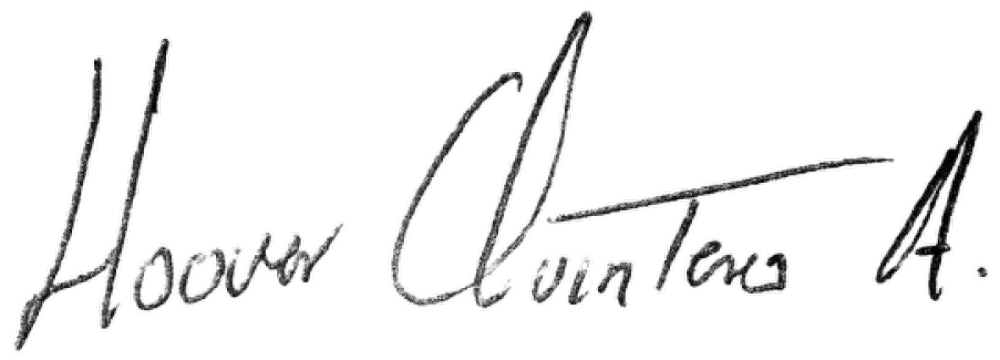 Hoover Quintero A.